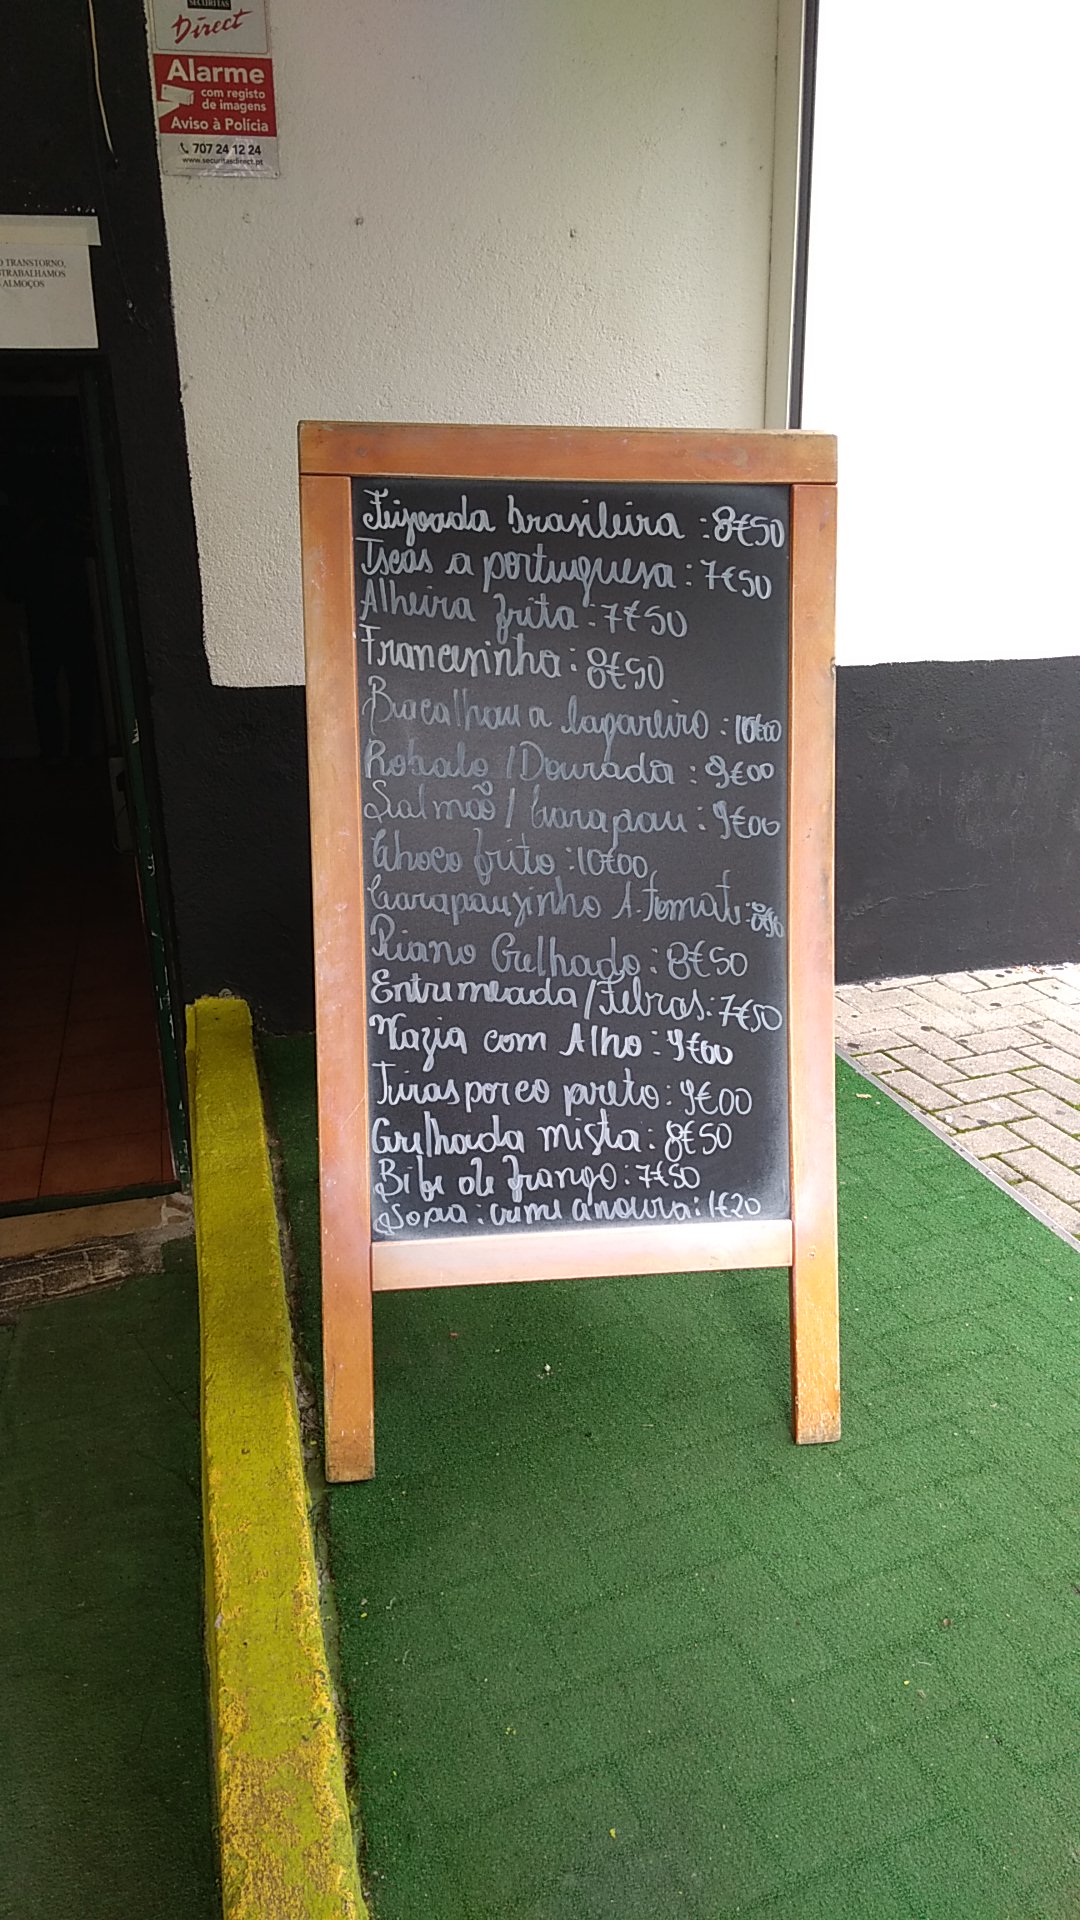 SECURITAS
Direct
Alarme
com registo
de imagens
Aviso à Polícia
707 24 12 24
www.securitasdirect.pt
O TRANSTORNO,
STRABALHAMOS
ALMOÇOS
Feijoada brasileira : 8€50
Iscas a portuguesa : 7€50
Alheira frita : 7€50
Francesinha : 8€50
Bacalhau a lagareiro : 10€00
Robalo / Dourada : 9€00
Salmão / Carapau : 9€00
Choco frito : 10€00
Carapauzinho A. Tomate : 8€50
Piano Grelhado : 8€50
Entremeada / Febras : 7€50
Vazia com Alho : 9€00
Tiras porco preto : 9€00
Grelhada mista : 8€50
Bife de frango : 7€50
Sopa : creme cenoura : 1€20